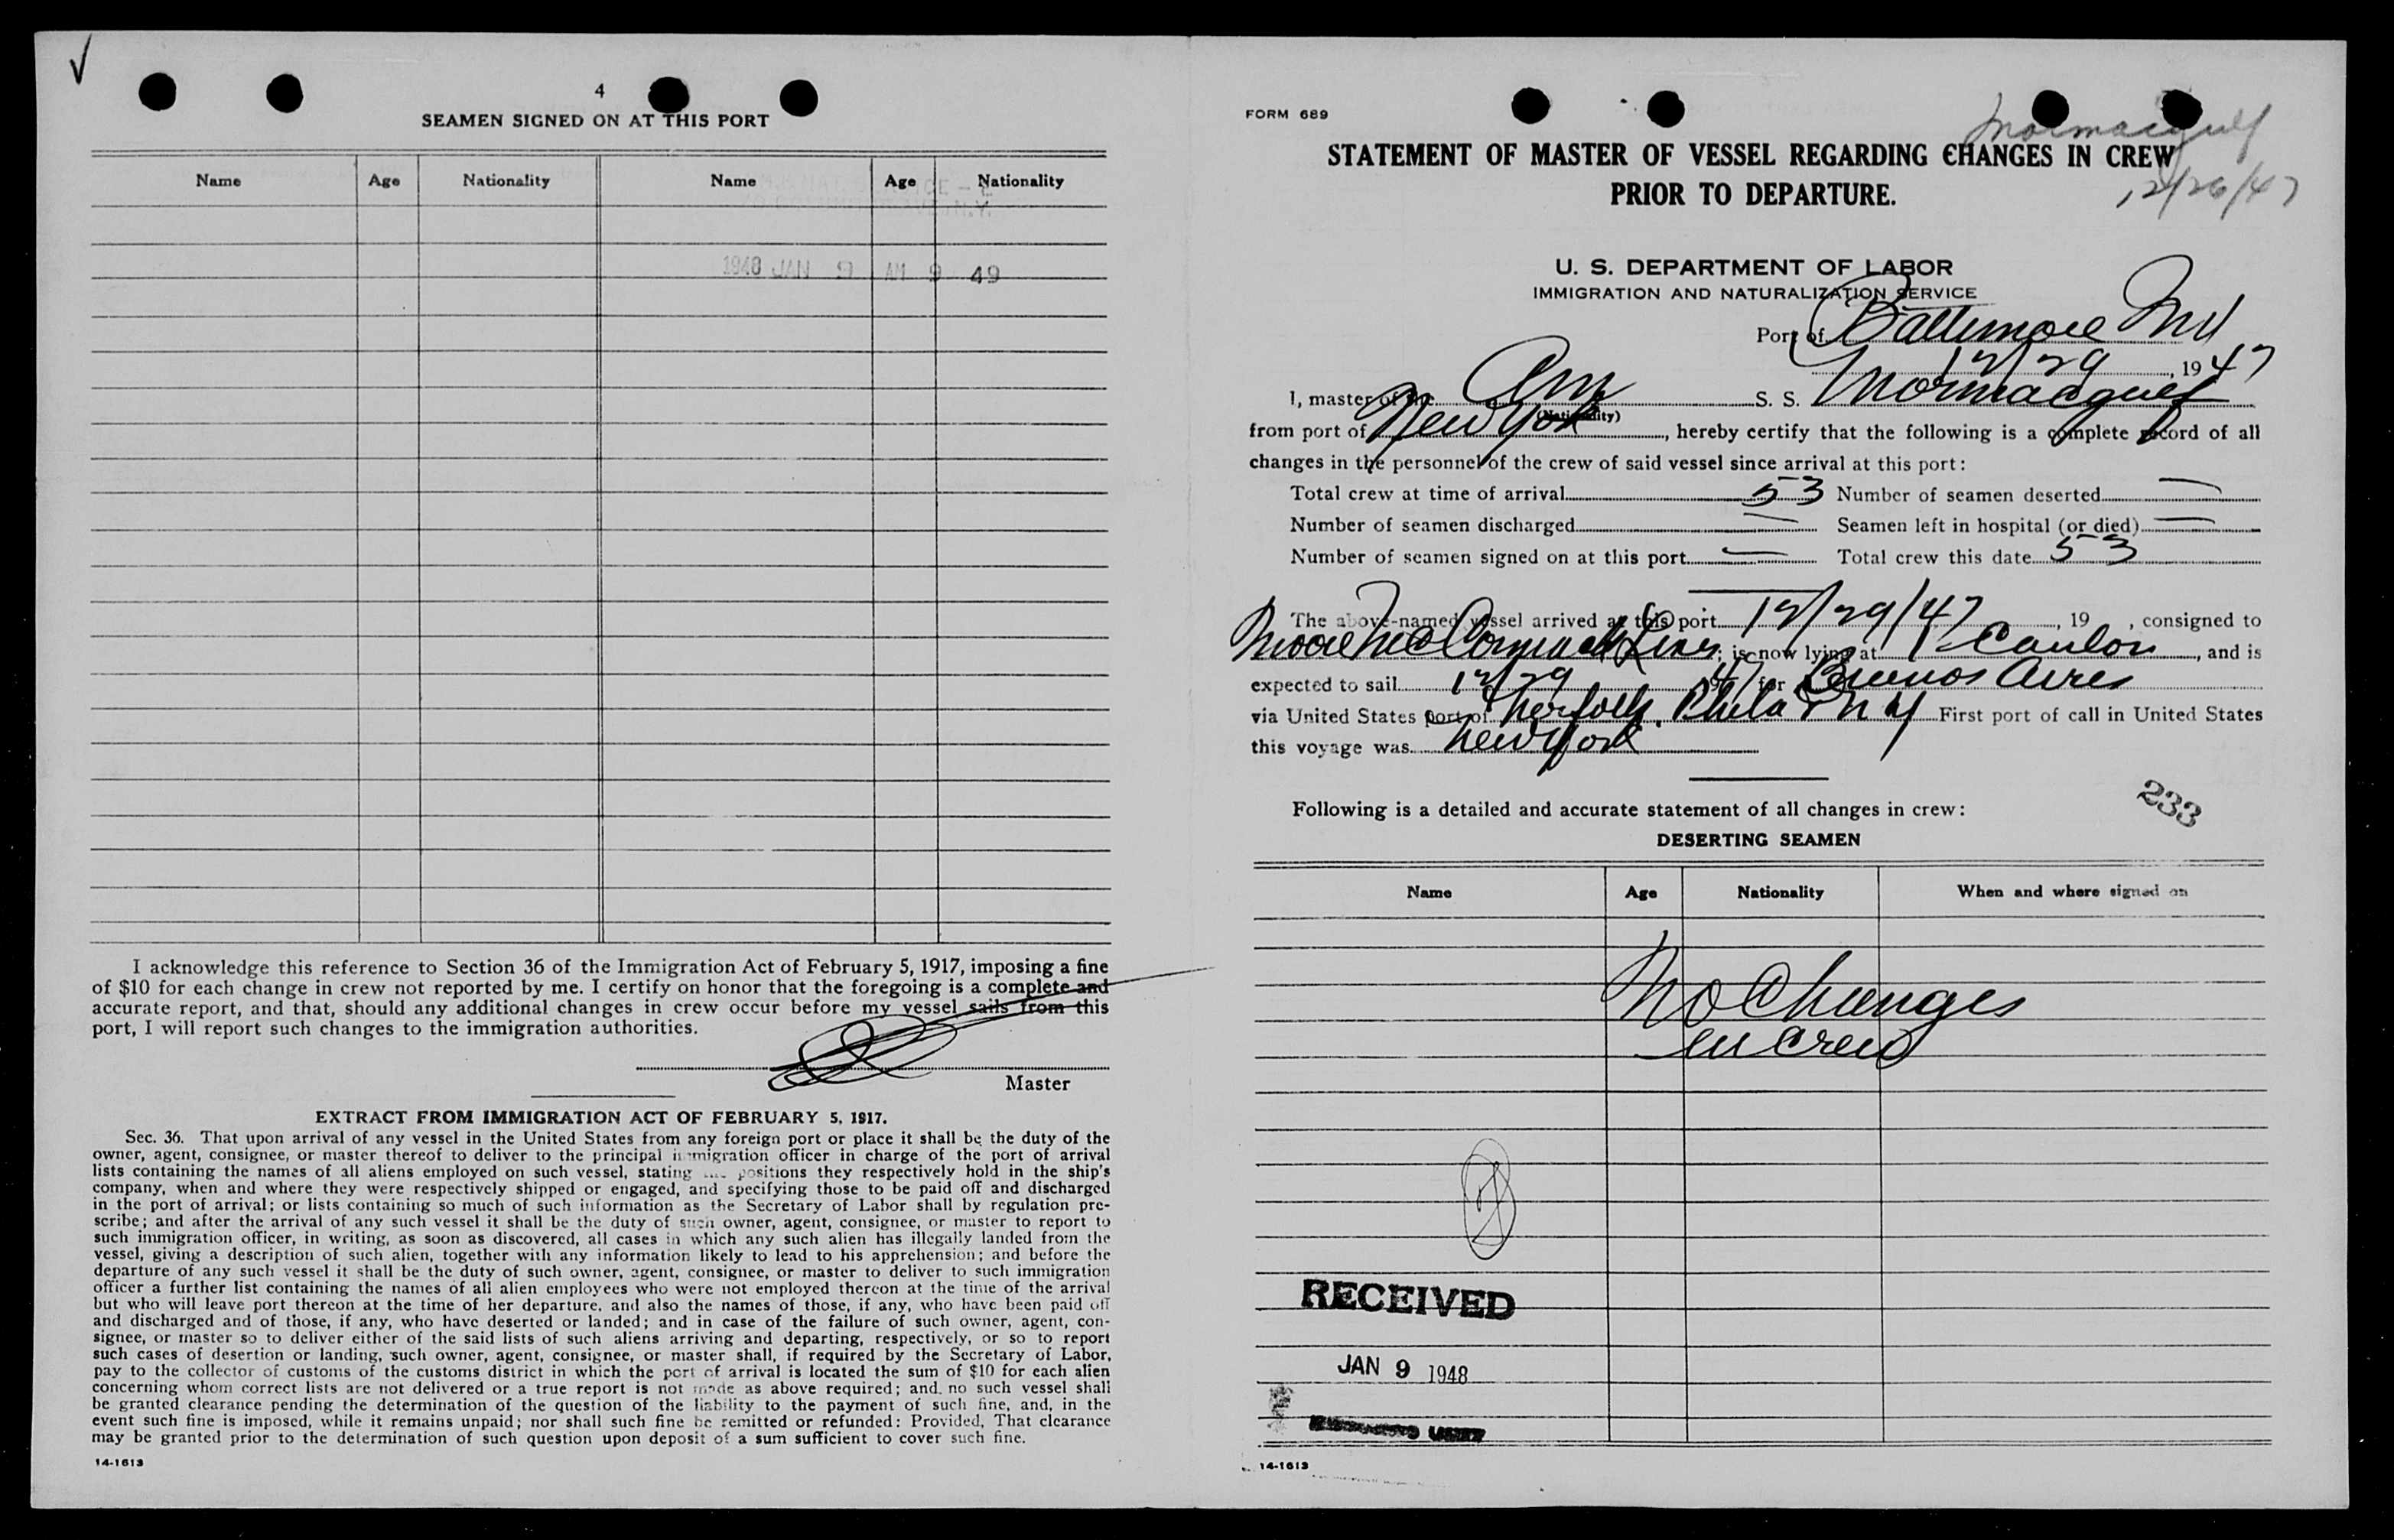 4
SEAMEN SIGNED ON AT THIS PORT
Name Age Nationality Name Age Nationality
1948 JAN 9 AM 9 49
I acknowledge this reference to Section 36 of the Immigration Act of February 5, 1917, imposing a fine
of $10 for each change in crew not reported by me. I certify on honor that the foregoing is a complete and
accurate report, and that, should any additional changes in crew occur before my vessel sails from this
port, I will report such changes to the immigration authorities.
Master
EXTRACT FROM IMMIGRATION ACT OF FEBRUARY 5, 1917.
Sec. 36. That upon arrival of any vessel in the United States from any foreign port or place it shall be the duty of the
owner, agent, consignee, or master thereof to deliver to the principal immigration officer in charge of the port of arrival
lists containing the names of all aliens employed on such vessel, stating the positions they respectively hold in the ship's
company, when and where they were respectively shipped or engaged, and specifying those to be paid off and discharged
in the port of arrival; or lists containing so much of such information as the Secretary of Labor shall by regulation pre-
scribe; and after the arrival of any such vessel it shall be the duty of such owner, agent, consignee, or master to report to
such immigration officer, in writing, as soon as discovered, all cases in which any such alien has illegally landed from the
vessel, giving a description of such alien, together with any information likely to lead to his apprehension; and before the
departure of any such vessel it shall be the duty of such owner, agent, consignee, or master to deliver to such immigration
officer a further list containing the names of all alien employees who were not employed thereon at the time of the arrival
but who will leave port thereon at the time of her departure, and also the names of those, if any, who have been paid off
and discharged and of those, if any, who have deserted or landed; and in case of the failure of such owner, agent, con-
signee, or master so to deliver either of the said lists of such aliens arriving and departing, respectively, or so to report
such cases of desertion or landing, such owner, agent, consignee, or master shall, if required by the Secretary of Labor,
pay to the collector of customs of the customs district in which the port of arrival is located the sum of $10 for each alien
concerning whom correct lists are not delivered or a true report is not made as above required; and no such vessel shall
be granted clearance pending the determination of the question of the liability to the payment of such fine, and, in the
event such fine is imposed, while it remains unpaid; nor shall such fine be remitted or refunded: Provided, That clearance
may be granted prior to the determination of such question upon deposit of a sum sufficient to cover such fine.
14-1613
FORM 689
Mormacgulf
12/26/47
STATEMENT OF MASTER OF VESSEL REGARDING CHANGES IN CREW
PRIOR TO DEPARTURE.
U. S. DEPARTMENT OF LABOR
IMMIGRATION AND NATURALIZATION SERVICE
Port of Baltimore Md
12/29, 1947
I, master of the Am S. S. Mormacgulf
(Nationality)
from port of New York, hereby certify that the following is a complete record of all
changes in the personnel of the crew of said vessel since arrival at this port:
Total crew at time of arrival 53 Number of seamen deserted —
Number of seamen discharged — Seamen left in hospital (or died) —
Number of seamen signed on at this port — Total crew this date 53
The above-named vessel arrived at this port 12/29/47, 19 , consigned to
Moore McCormack Lines, is now lying at 1 Canton, and is
expected to sail 12/29 1947 for Buenos Aires
via United States port of Norfolk, Phila & N Y First port of call in United States
this voyage was New York
233
Following is a detailed and accurate statement of all changes in crew:
DESERTING SEAMEN
Name Age Nationality When and where signed on
No Changes
in crew
RECEIVED
JAN 9 1948
14-1613